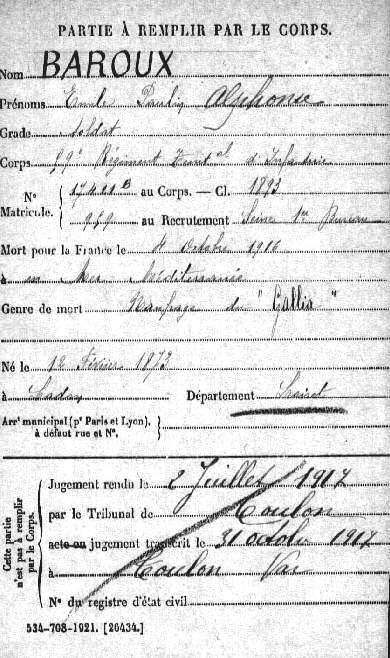 PARTIE À REMPLIR PAR LE CORPS.
Nom BAROUX
Prénoms Emile Paulin Alphonse
Grade Soldat
Corps Régiment d'Infanterie
Nº Matricule. au Corps. — Cl. 1893
979 au Recrutement Seine 1er Bureau
Mort pour la France le 4 Octobre 1916
à en Mer Méditerranée
Genre de mort Naufrage du "Gallia"
Né le 12 Février 1873
à Département Loiret
Arrᵗ municipal (pʳ Paris et Lyon), à défaut rue et Nº.
Cette partie n'est pas à remplir par le Corps.
Jugement rendu le 2 Juillet 1917
par le Tribunal de Toulon
acte ou jugement transcrit le 31 octob 1917
à Toulon Var
Nº du registre d'état civil
534-708-1921. [26434.]